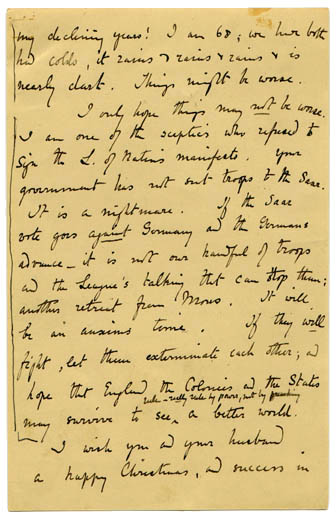 my declining years! I am 68; we have both
had colds, it rains & rains & rains & is
nearly dark. Things might be worse.
I only hope things may not be worse.
I am one of the sceptics who refused to
sign the L. of Nations manifesto. Your
government has not sent troops to the Saar.
It is a nightmare. If the Saar
vote goes against Germany and the Germans
advance – it is not our handful of troops
and the League's talking that can stop them;
another retreat from Mons. It will
be an anxious time. If they will
fight, let them exterminate each other; and
hope that England the Colonies and the States
rule – really rule by power, not by
may survive to see a better world.
I wish you and your husband
a happy Christmas, and success in